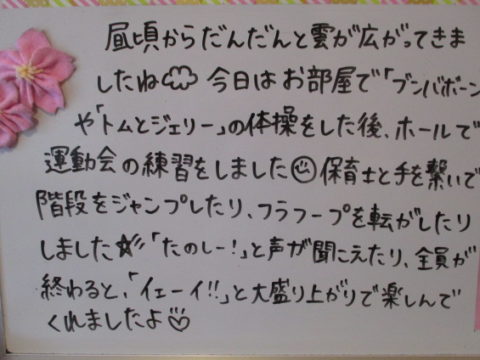 昼頃からだんだんと雲が広がってきま
したね 今日はお部屋で「ブンバボーン」
や「トムとジェリー」の体操をした後、ホールで
運動会の練習をしました 保育士と手を繋いで
階段をジャンプしたり、フラフープを転がしたり
しました☆彡「たのしー!」と声が聞こえたり、全員が
終わると、「イェーイ!!」と大盛り上がりで楽しんで
くれましたよ♡